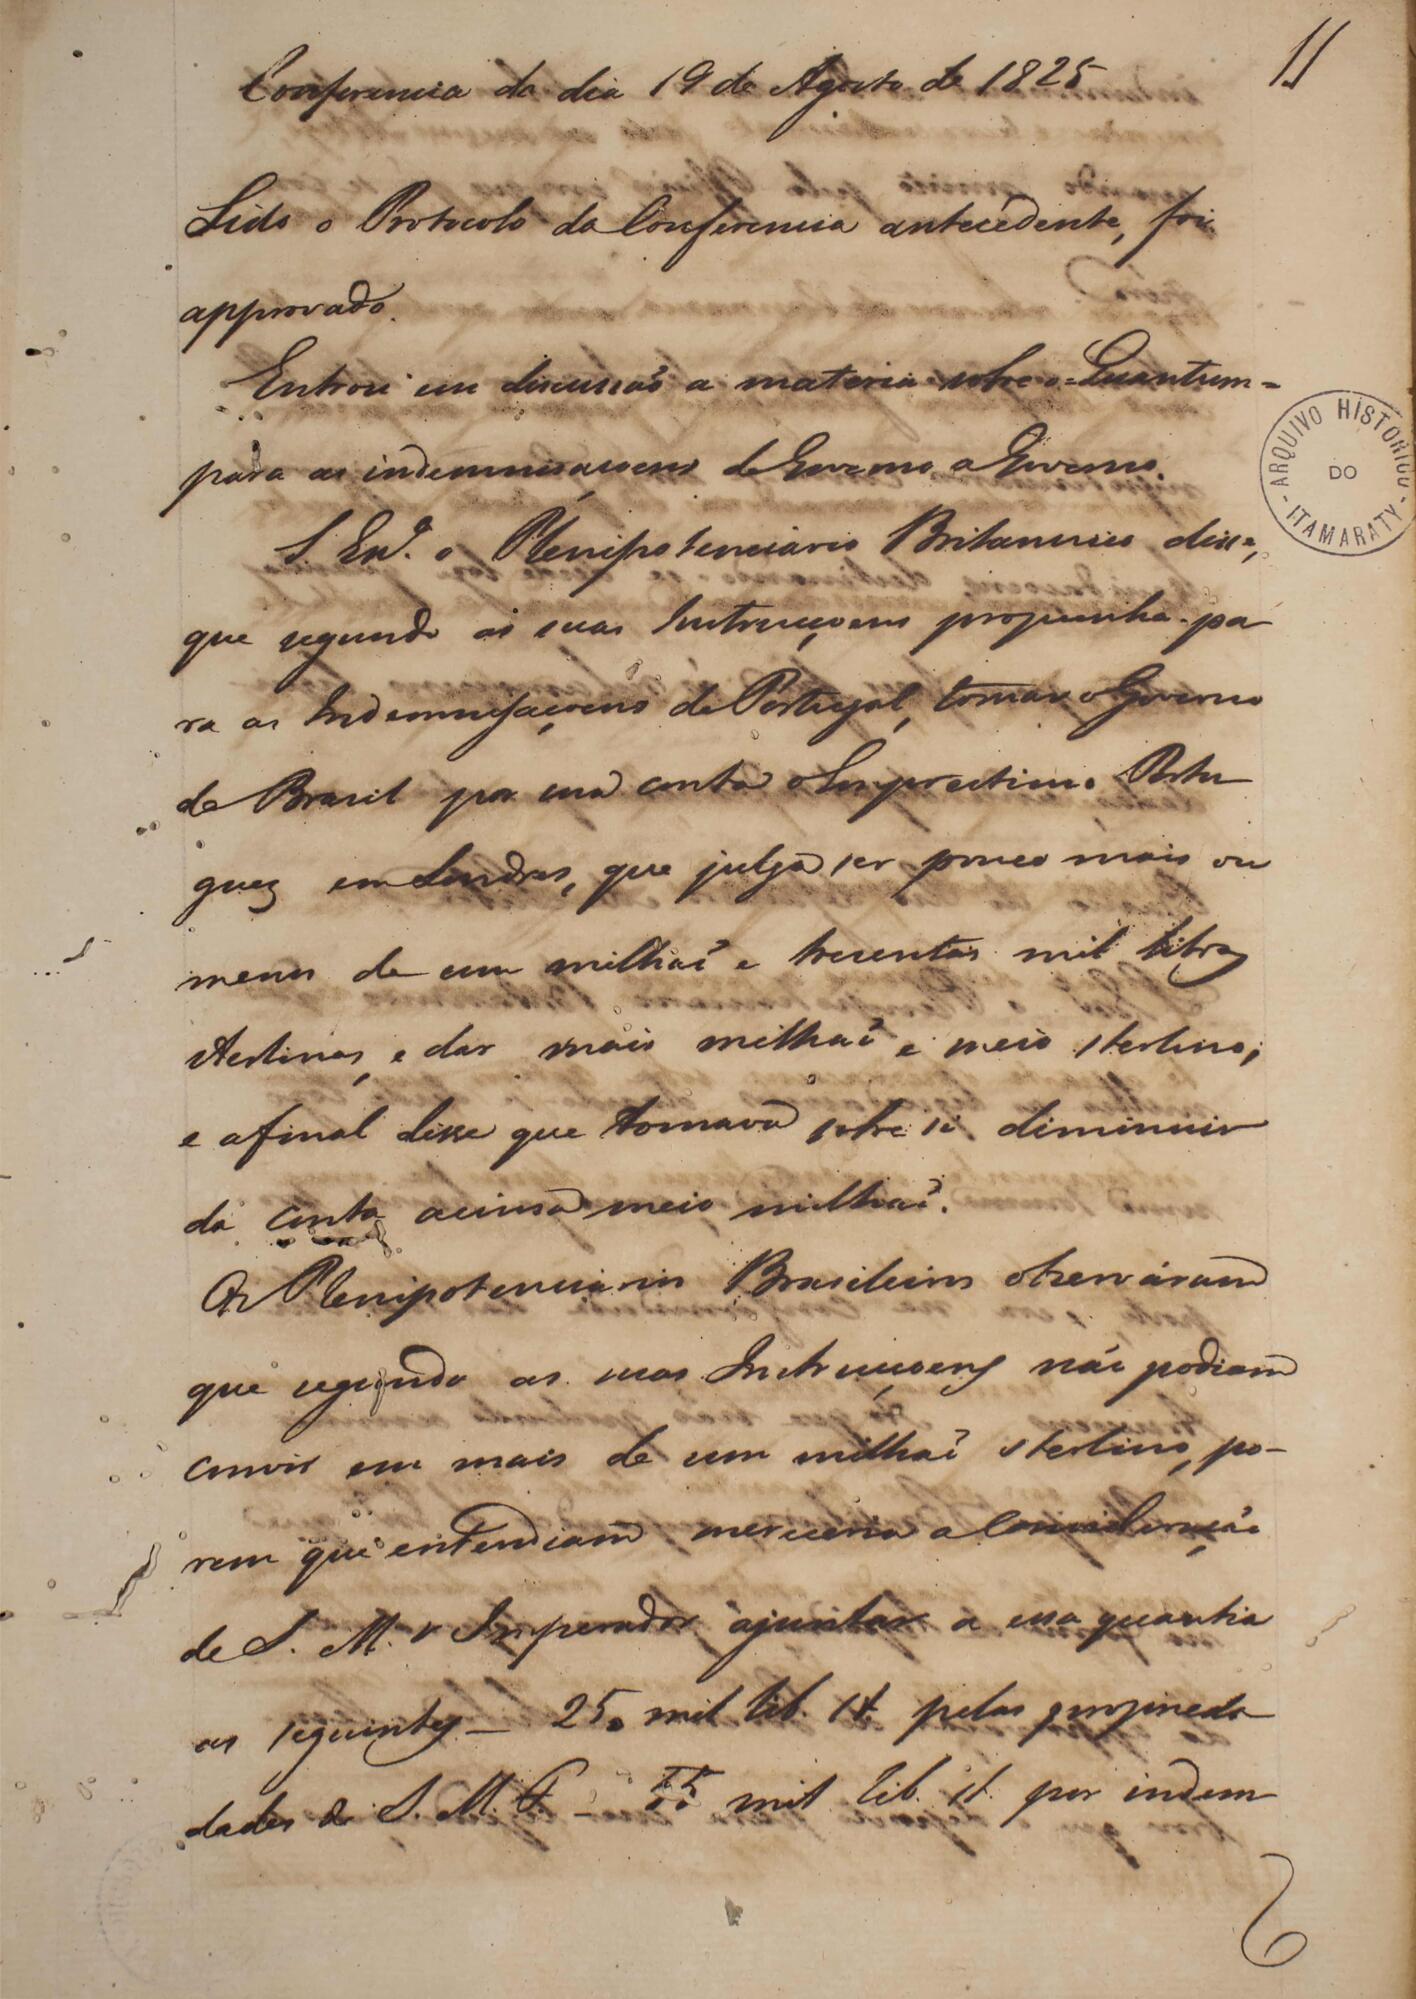 11
Conferencia do dia 19 de Agosto de 1825
Lido o Protocolo da Conferencia antecedente, foi
approvado.
Entrou em discussaõ a materia sobre o = Quantum =
para as indemnisaçoens de Governo a Governo.
S. Ex.ª o Plenipotenciario Britannico disse,
que segundo as suas Instrucçoens propunha pa
ra as Indemnisaçoens de Portugal, tomar o Governo
do Brasil por sua conta o Emprestimo Portu
guez em Londres, que julga ser pouco mais ou
menos de um milhaõ e tresentas mil libras
sterlinas, e dar mais milhaõ e meio sterlino;
e afinal disse que tomava sobre si diminuir
da conta acima meio milhaõ.
Os Plenipotenciarios Brasileiros observáram
que segundo as suas Instrucçoens não podiam
convir em mais de um milhaõ sterlino, po-
rem que entendiam mereceria a Consideração
de S. M. o Imperador ajuntar a essa quantia
as seguintes — 250 mil lib. st. pelas propried
dades de S. M. F. — mil lib. st. por indem
6
ARQUIVO HISTÓRICO
DO
- ITAMARATY -